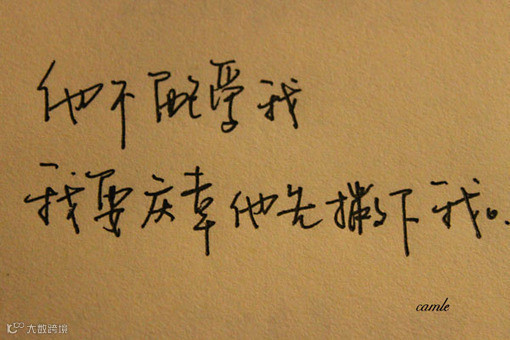 他不能爱我
我要庆幸他先撇下我。
camle
大数跨境